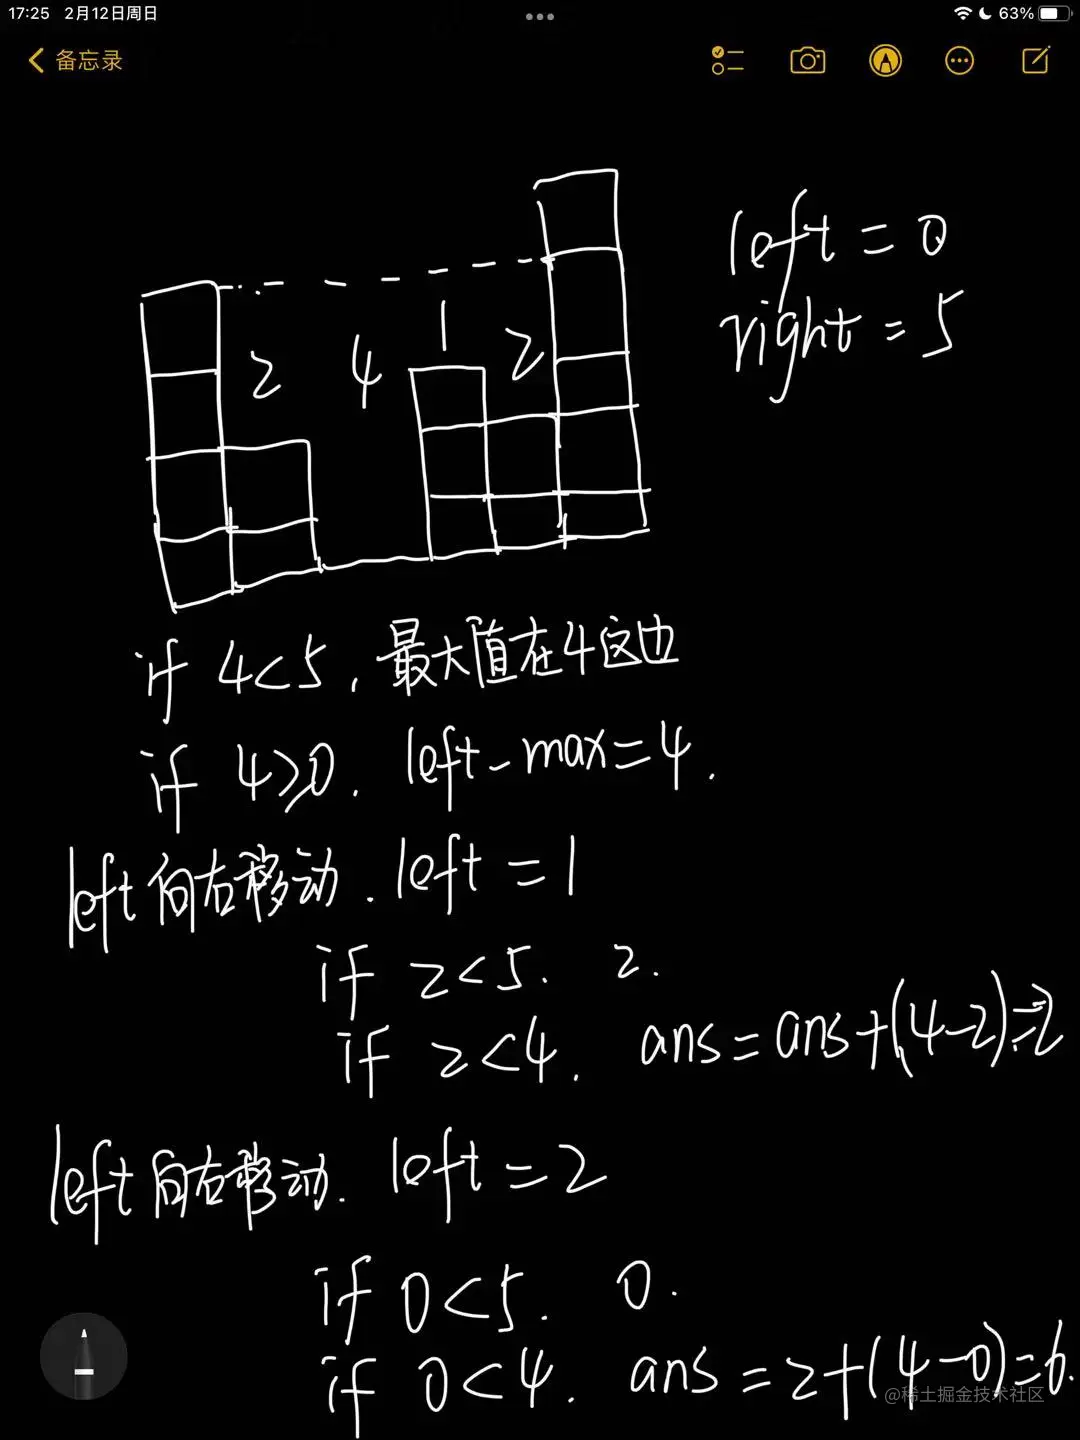 17:25 2月12日周日 63%
备忘录
left = 0
right = 5
2 4 1 2
if 4<5, 最大值在4这边
if 4≥0. left-max=4.
left向右移动. left = 1
if 2<5. 2.
if 2<4. ans=ans+(4-2)=2
left向右移动. left = 2
if 0<5. 0.
if 0<4. ans = 2+(4-0)=6.
@稀土掘金技术社区